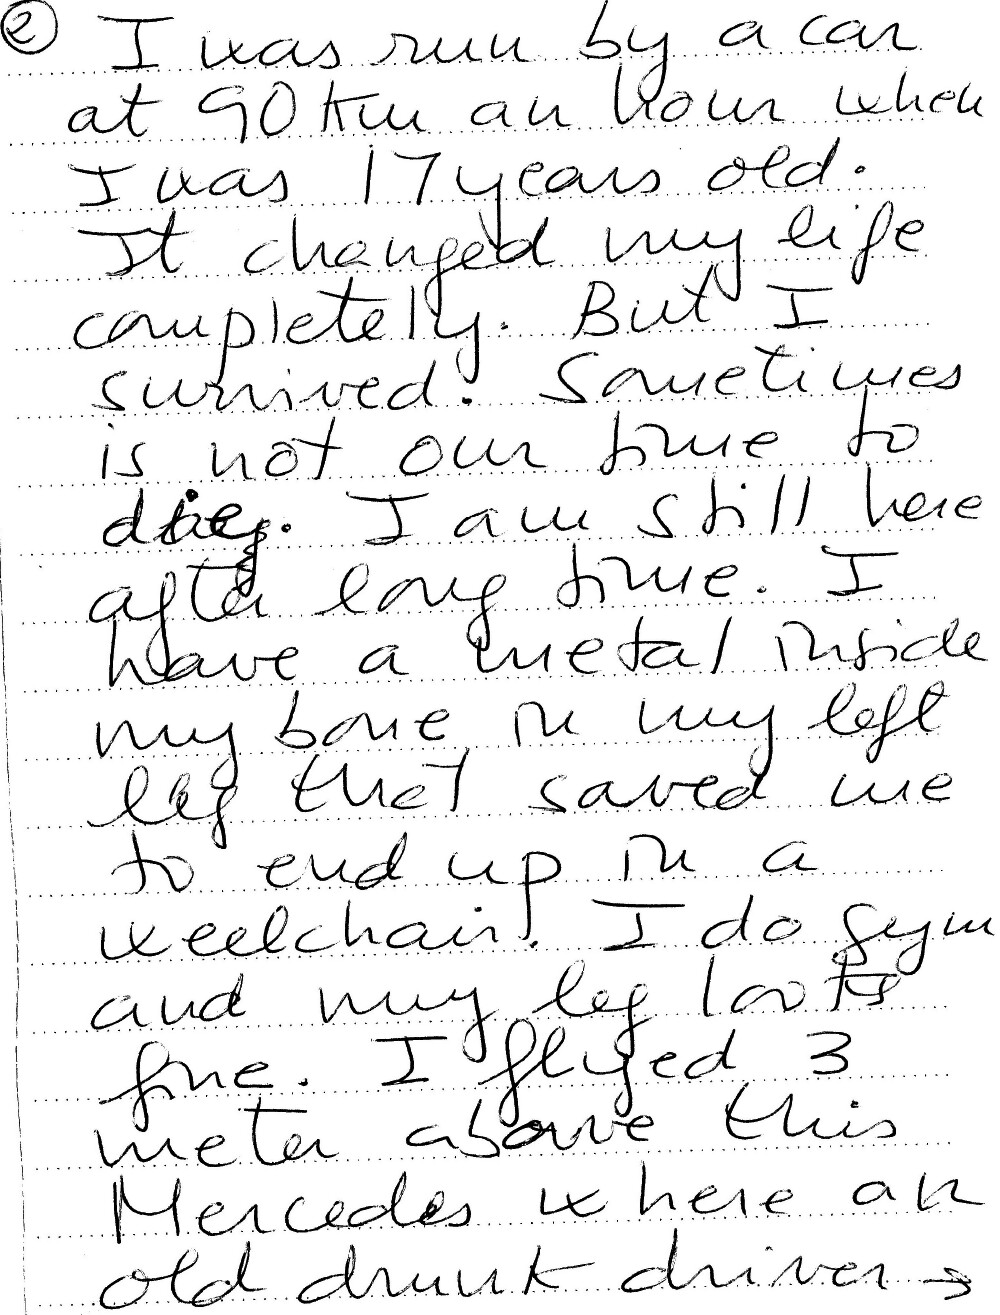 ② I was run by a car
at 90 km an hour when
I was 17 years old.
It changed my life
completely. But I
survived. Sometimes
is not our time to
die. I am still here
after long time. I
have a metal inside
my bone in my left
leg that saved me
to end up in a
weelchair! I do gym
and my leg looks
fine. I flyed 3
meter above this
Mercedes where an
old drunk driver →